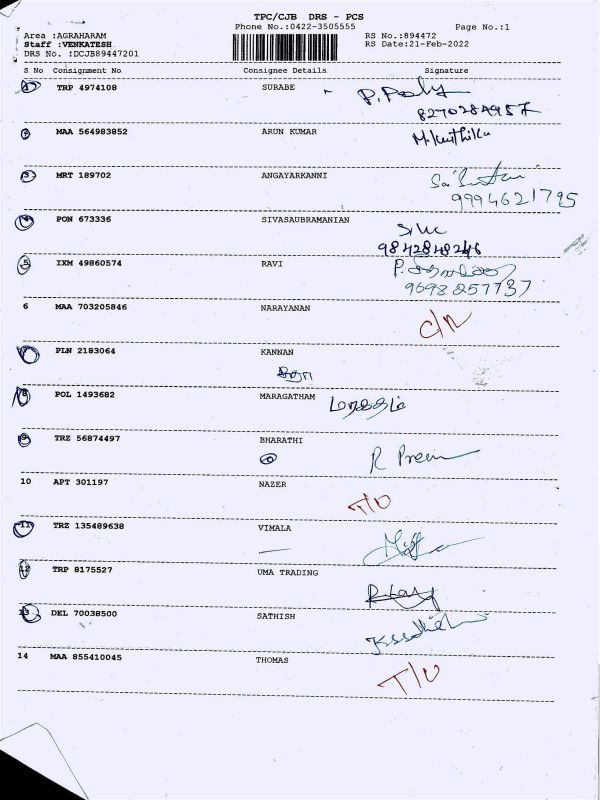 TPC/CJB DRS - PCS
Phone No.:0422-3505555 Page No.:1
Area :AGRAHARAM RS No.:894472
Staff :VENKATESH RS Date:21-Feb-2022
DRS No. :DCJB89447201
S No Consignment No Consignee Details Signature
1 TRP 4974108 SURABE
8270284957
2 MAA 564983852 ARUN KUMAR
3 MRT 189702 ANGAYARKANNI
9994621795
4 PON 673336 SIVASAUBRAMANIAN
9842848246
5 IXM 49860574 RAVI
9698257737
6 MAA 703205846 NARAYANAN
C/N
7 PLN 2183064 KANNAN
8 POL 1493682 MARAGATHAM மரகதம்
9 TRZ 56874497 BHARATHI
10 APT 301197 NAZER
T/O
11 TRZ 135489638 VIMALA
12 TRP 8175527 UMA TRADING
13 DEL 70038500 SATHISH
14 MAA 855410045 THOMAS
T/O